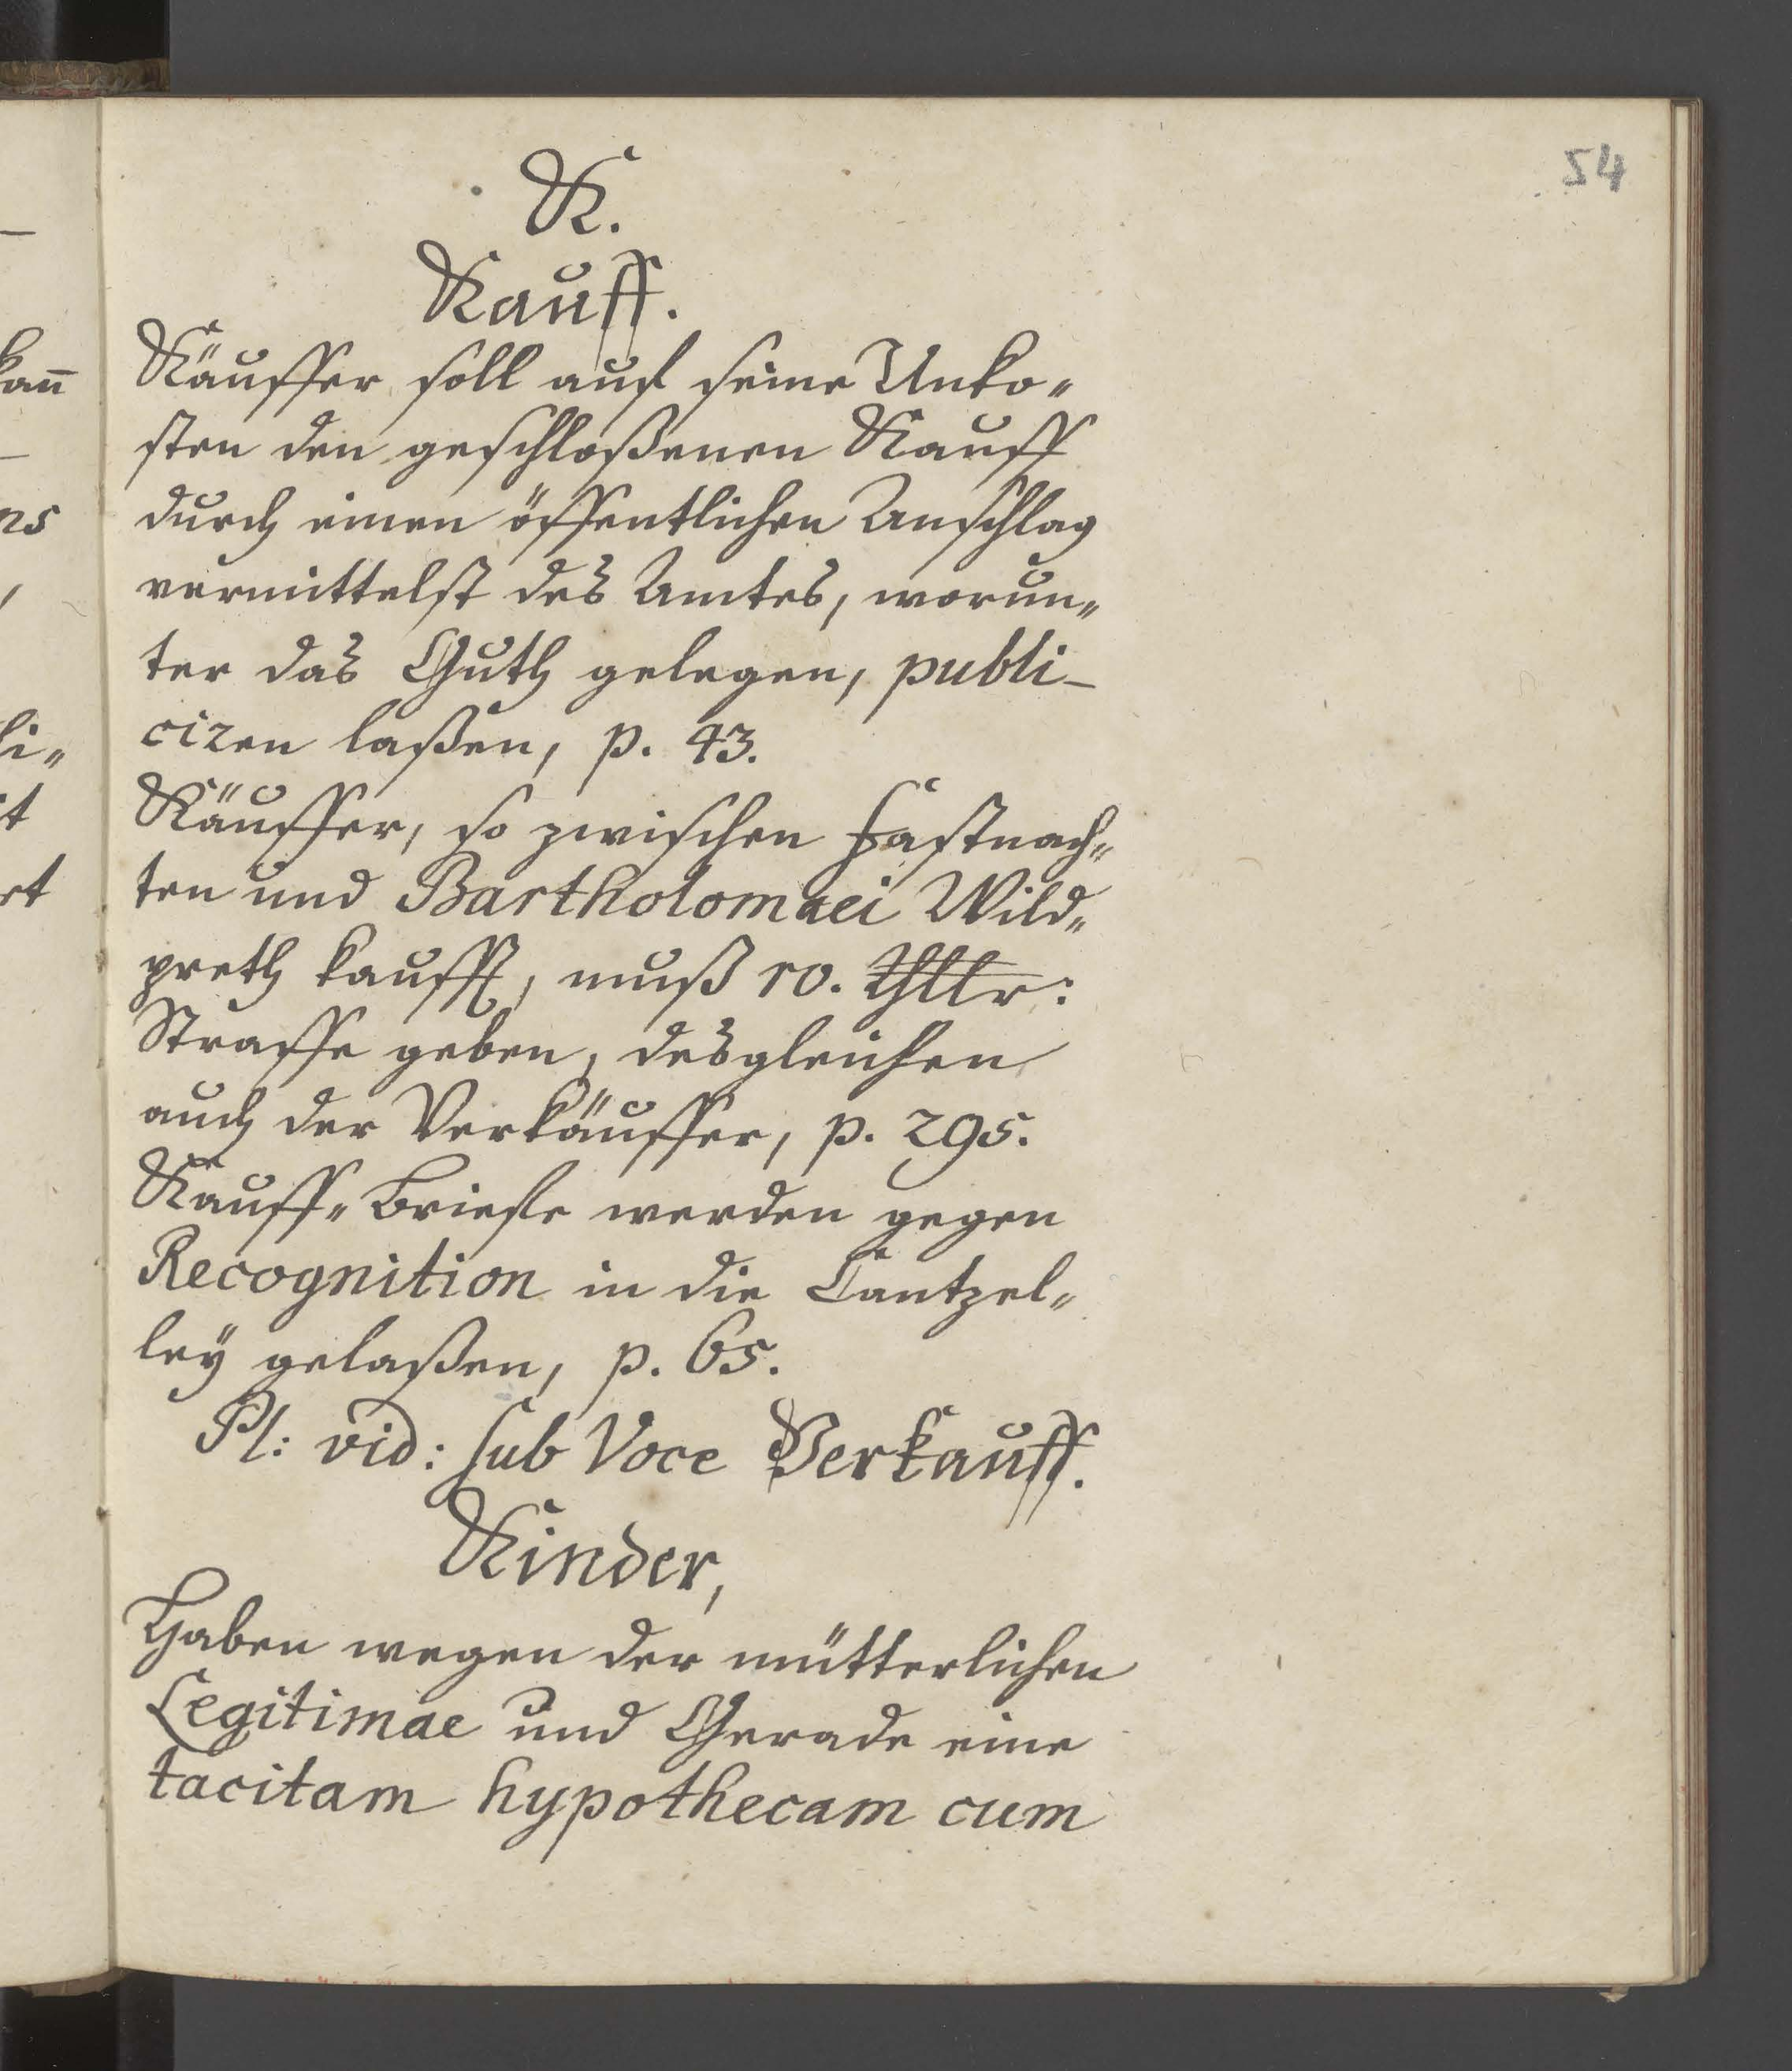 54
K.
Kauff.
Käuffer soll auf seine Unko„
sten den geschloßenen Kauff
durch einen öffentlichen Anschlag
vermittelst des Amtes, worun„
ter das Guth gelegen, publi-
ciren laßen, p. 43.
Käuffer, so zwischen Fastnach„
ten und Bartholomaei Wild„
preth kaufft, muß 10. Thlr:
Straffe geben, desgleichen
auch der Verkäuffer, p. 295.
Kauff„Brieffe werden gegen
Recognition in die Cantzel„
ley gelaßen, p. 65.
Pl: vid: sub Voce Verkauff.
Kinder,
Haben wegen der mütterlichen
Legitimae und Gerade eine
tacitam hypothecam cum
kan̄
ns
li„
it
rt